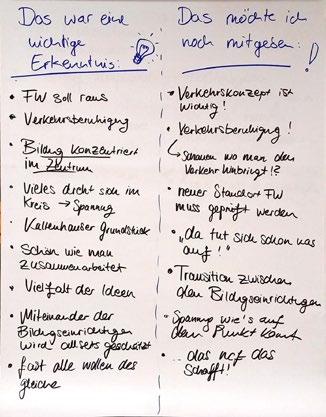 Das war eine
wichtige
Erkenntnis:
• FW soll raus
• Verkehrsberuhigung
• Bildung konzentriert
im Zentrum
• Vieles dreht sich im
Kreis → Spannung
• Kaltenhauser Grundstück
• Schön wie man
zusammenarbeitet
• Vielfalt der Ideen
• Miteinander der
Bildungseinrichtungen
wird allseits geschätzt
• fast alle wollen das
gleiche
Das möchte ich
noch mitgeben:
!
• Verkehrskonzept ist
wichtig!
• Verkehrsberuhigung!
↳ Schauen wo man den
Verkehr hinbringt!?
• neuer Standort FW
muss geprüft werden
• „da tut sich schon was
auf!"
• Transition zwischen
den Bildungseinrichtungen
• Spannung wie's auf
den Punkt kommt
• ... das das
schafft!